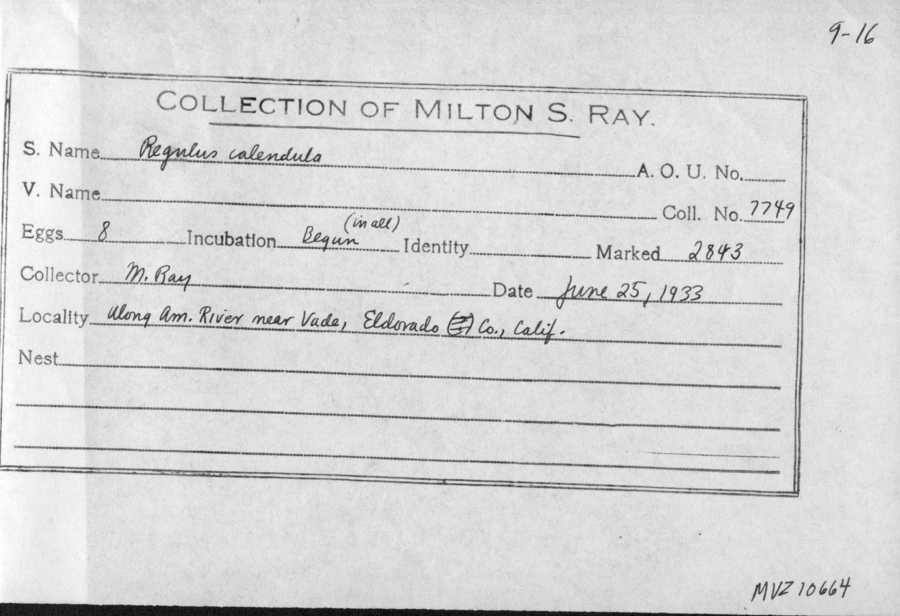 9-16
COLLECTION OF MILTON S. RAY.
S. Name Regulus calendula A. O. U. No.
V. Name Coll. No. 7749
Eggs 8 Incubation Begun (in all) Identity Marked 2843
Collector M. Ray Date June 25, 1933
Locality Along Am. River near Vade, Eldorado Co., Calif.
Nest
MVZ 10664